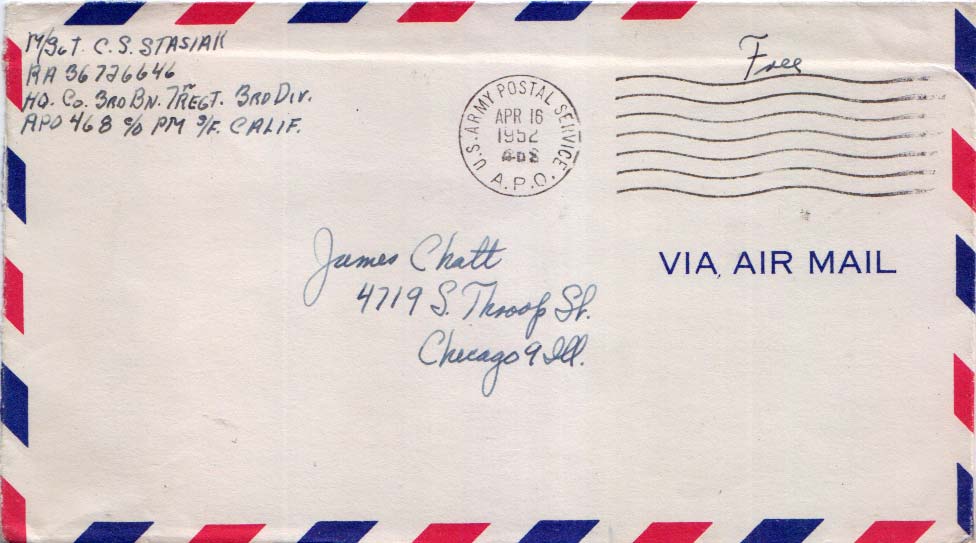 M/Sgt. C. S. STASIAK
RA 36726646
HQ. Co. 3RD BN. 7TH REGT. 3RD DIV.
APO 468 c/o PM S/F. CALIF.
Free
U.S. ARMY POSTAL SERVICE
APR 16
1952
A.P.O.
VIA AIR MAIL
James Chatt
4719 S. Throop St.
Chicago 9 Ill.